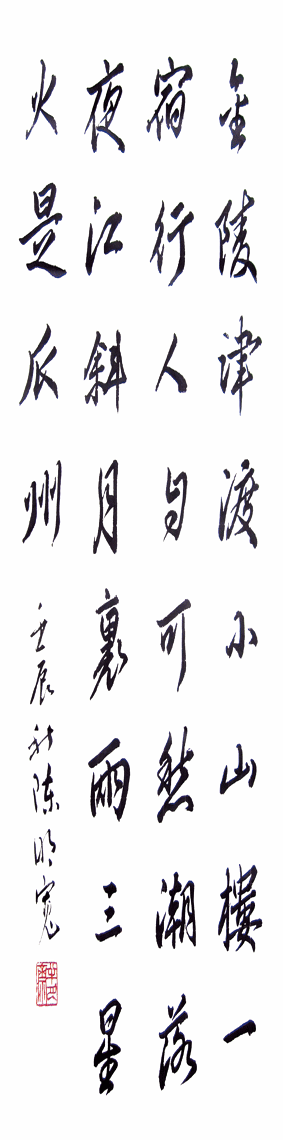 金陵津渡小山樓一
宿行人自可愁潮落
夜江斜月裏兩三星
火是瓜州
壬辰秋陳明寬